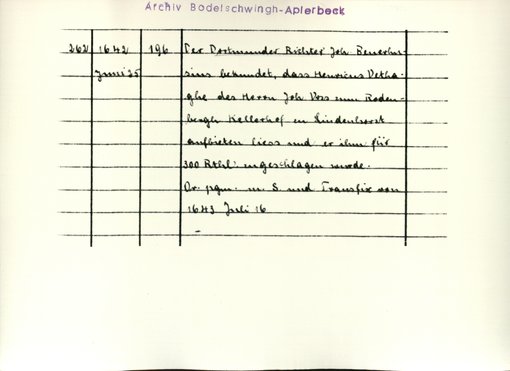 Archiv Bodelschwingh-Aplerbeck
262 1642 196 Der Dortmunder Richter Joh Beuerhu-
Juni 25 sius bekundet, dass Henricus Detha-
ghe des Herrn Joh Voss zum Roden-
bergh Kellerhof en Lindenhorst
aufbieten liess und er ihm für
300 Rthl. zugeschlagen wurde.
Or. pgm. m. S. und Transfix von
1643 Juli 16
-